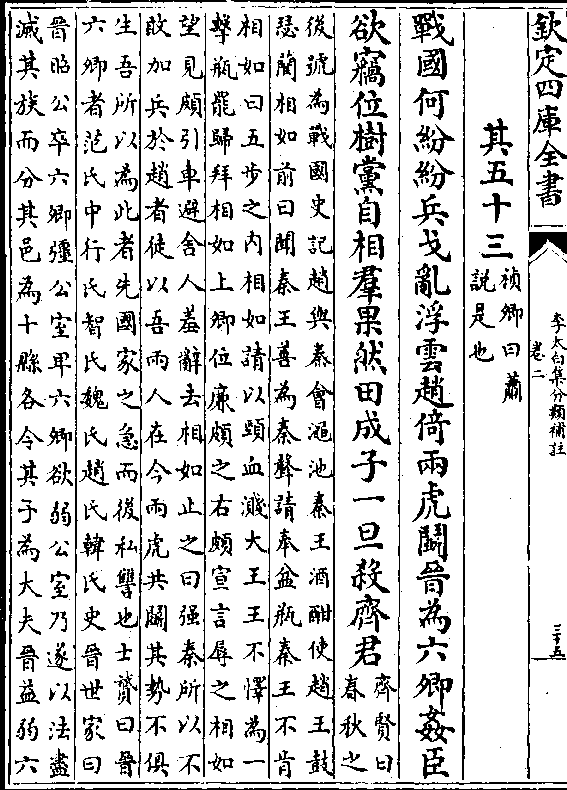 欽定四庫全書
李太白集分類補註
卷二
三十五
其五十三
禎卿曰蕭
說是也
戰國何紛紛兵戈亂浮雲趙倚兩虎鬭晉為六卿姦臣
欲竊位樹黨自相羣果然田成子一旦殺齊君
齊賢曰
春秋之
後號為戰國史記趙與秦會澠池秦王酒酣使趙王鼓
瑟藺相如前曰聞秦王善為秦聲請奉盆瓶秦王不肯
相如曰五步之內相如請以頸血濺大王王不懌為一
擊瓶罷歸拜相如上卿位廉頗之右頗宣言辱之相如
望見頗引車避舍人羞辭去相如止之曰强秦所以不
敢加兵於趙者徒以吾兩人在今兩虎共鬭其勢不俱
生吾所以為此者先國家之急而後私讐也士贇曰晉
六卿者范氏中行氏智氏魏氏趙氏韓氏史晉世家曰
晉昭公卒六卿彊公室卑六卿欲弱公室乃遂以法盡
滅其族而分其邑為十縣各令其子為大夫晉益弱六